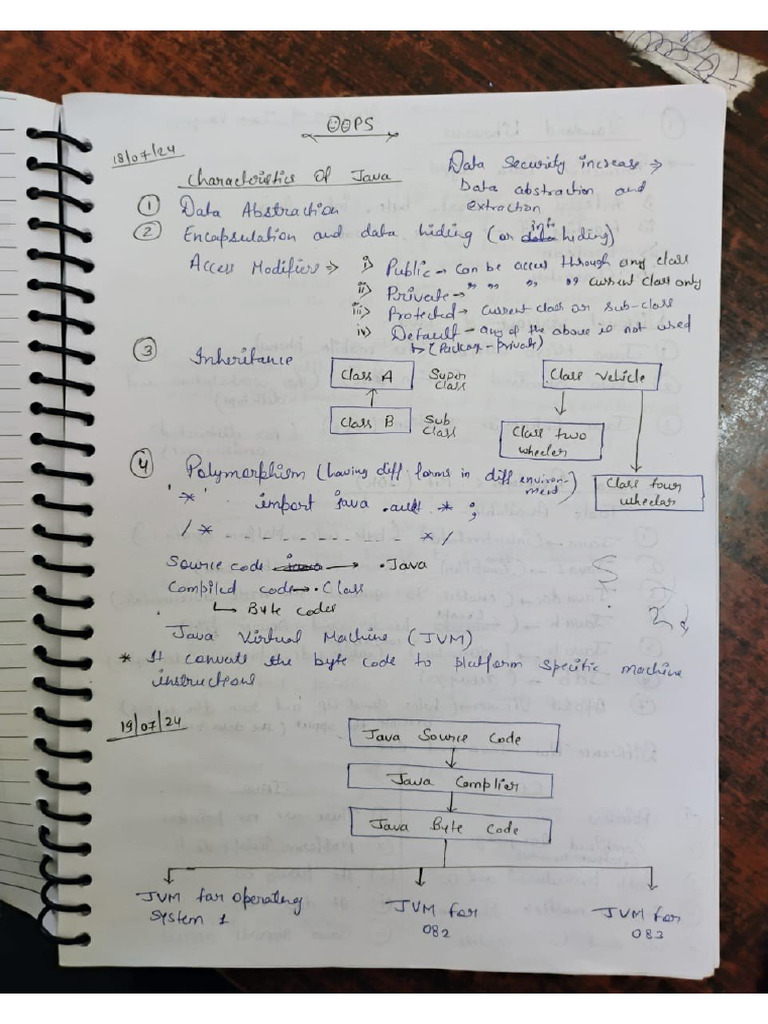 OOPS
18/07/24
Characteristics Of Java
Data Security increase →
Data abstraction and
extraction
① Data Abstraction
② Encapsulation and data hiding (or info hiding)
Access Modifiers → i) Public → can be access through any class
ii) Private → " " " " current class only
iii) Protected → current class or sub-class
iv) Default → any of the above is not used
↳ (Package-private)
③ Inheritance
Class A Super Class
Class B Sub Class
Class Vehicle
Class two wheeler
Class four wheeler
④ Polymorphism (having diff forms in diff environ-
ment)
* import java . * ;
/* - - - - - - - - - - - - */
Source code java → .Java
Compiled code → .Class
↳ Byte codes
Java Virtual Machine (JVM)
* It convate the byte code to platform specific machine
instructions
19/07/24
Java Source Code
Java Complier
Java Byte Code
JVM for Operating
System 1
JVM for
OS2
JVM for
OS3